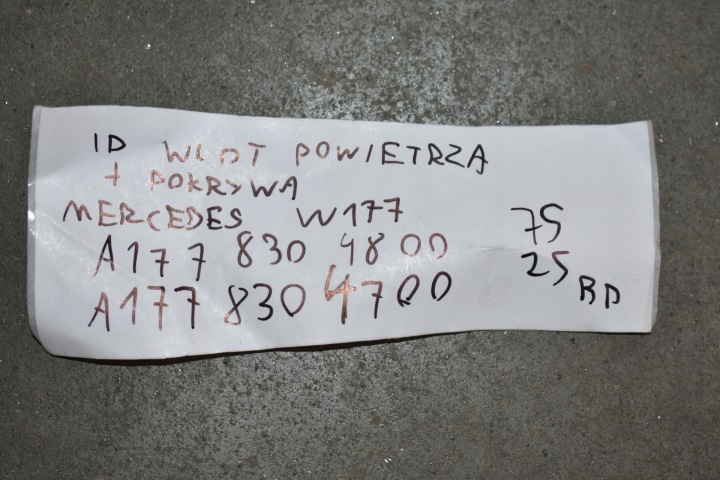 ID WLOT POWIETRZA
+ POKRYWA
MERCEDES W177
A177 830 4800
A177 830 4700
75
25
BP